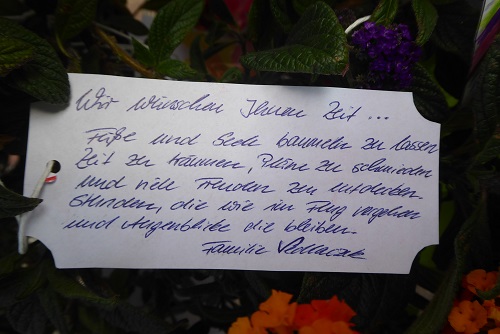 Wir wünschen Ihnen Zeit ...
Füße und Seele baumeln zu lassen
Zeit zu träumen, Pläne zu schmieden
und viele Freuden zu entdecken
Stunden, die wie im Flug vergehen
und Augenblicke die bleiben.
Familie